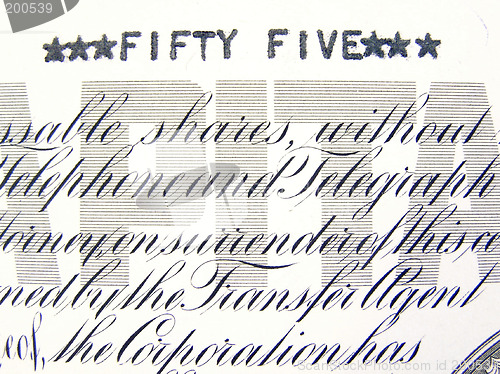 200539
★★★FIFTY FIVE★★★
ssable shares, without
Telephone and Telegraph
torney, on surrender of this ce
ned by the Transfer Agent
e of, the Corporation has
© Crestock.com 200539